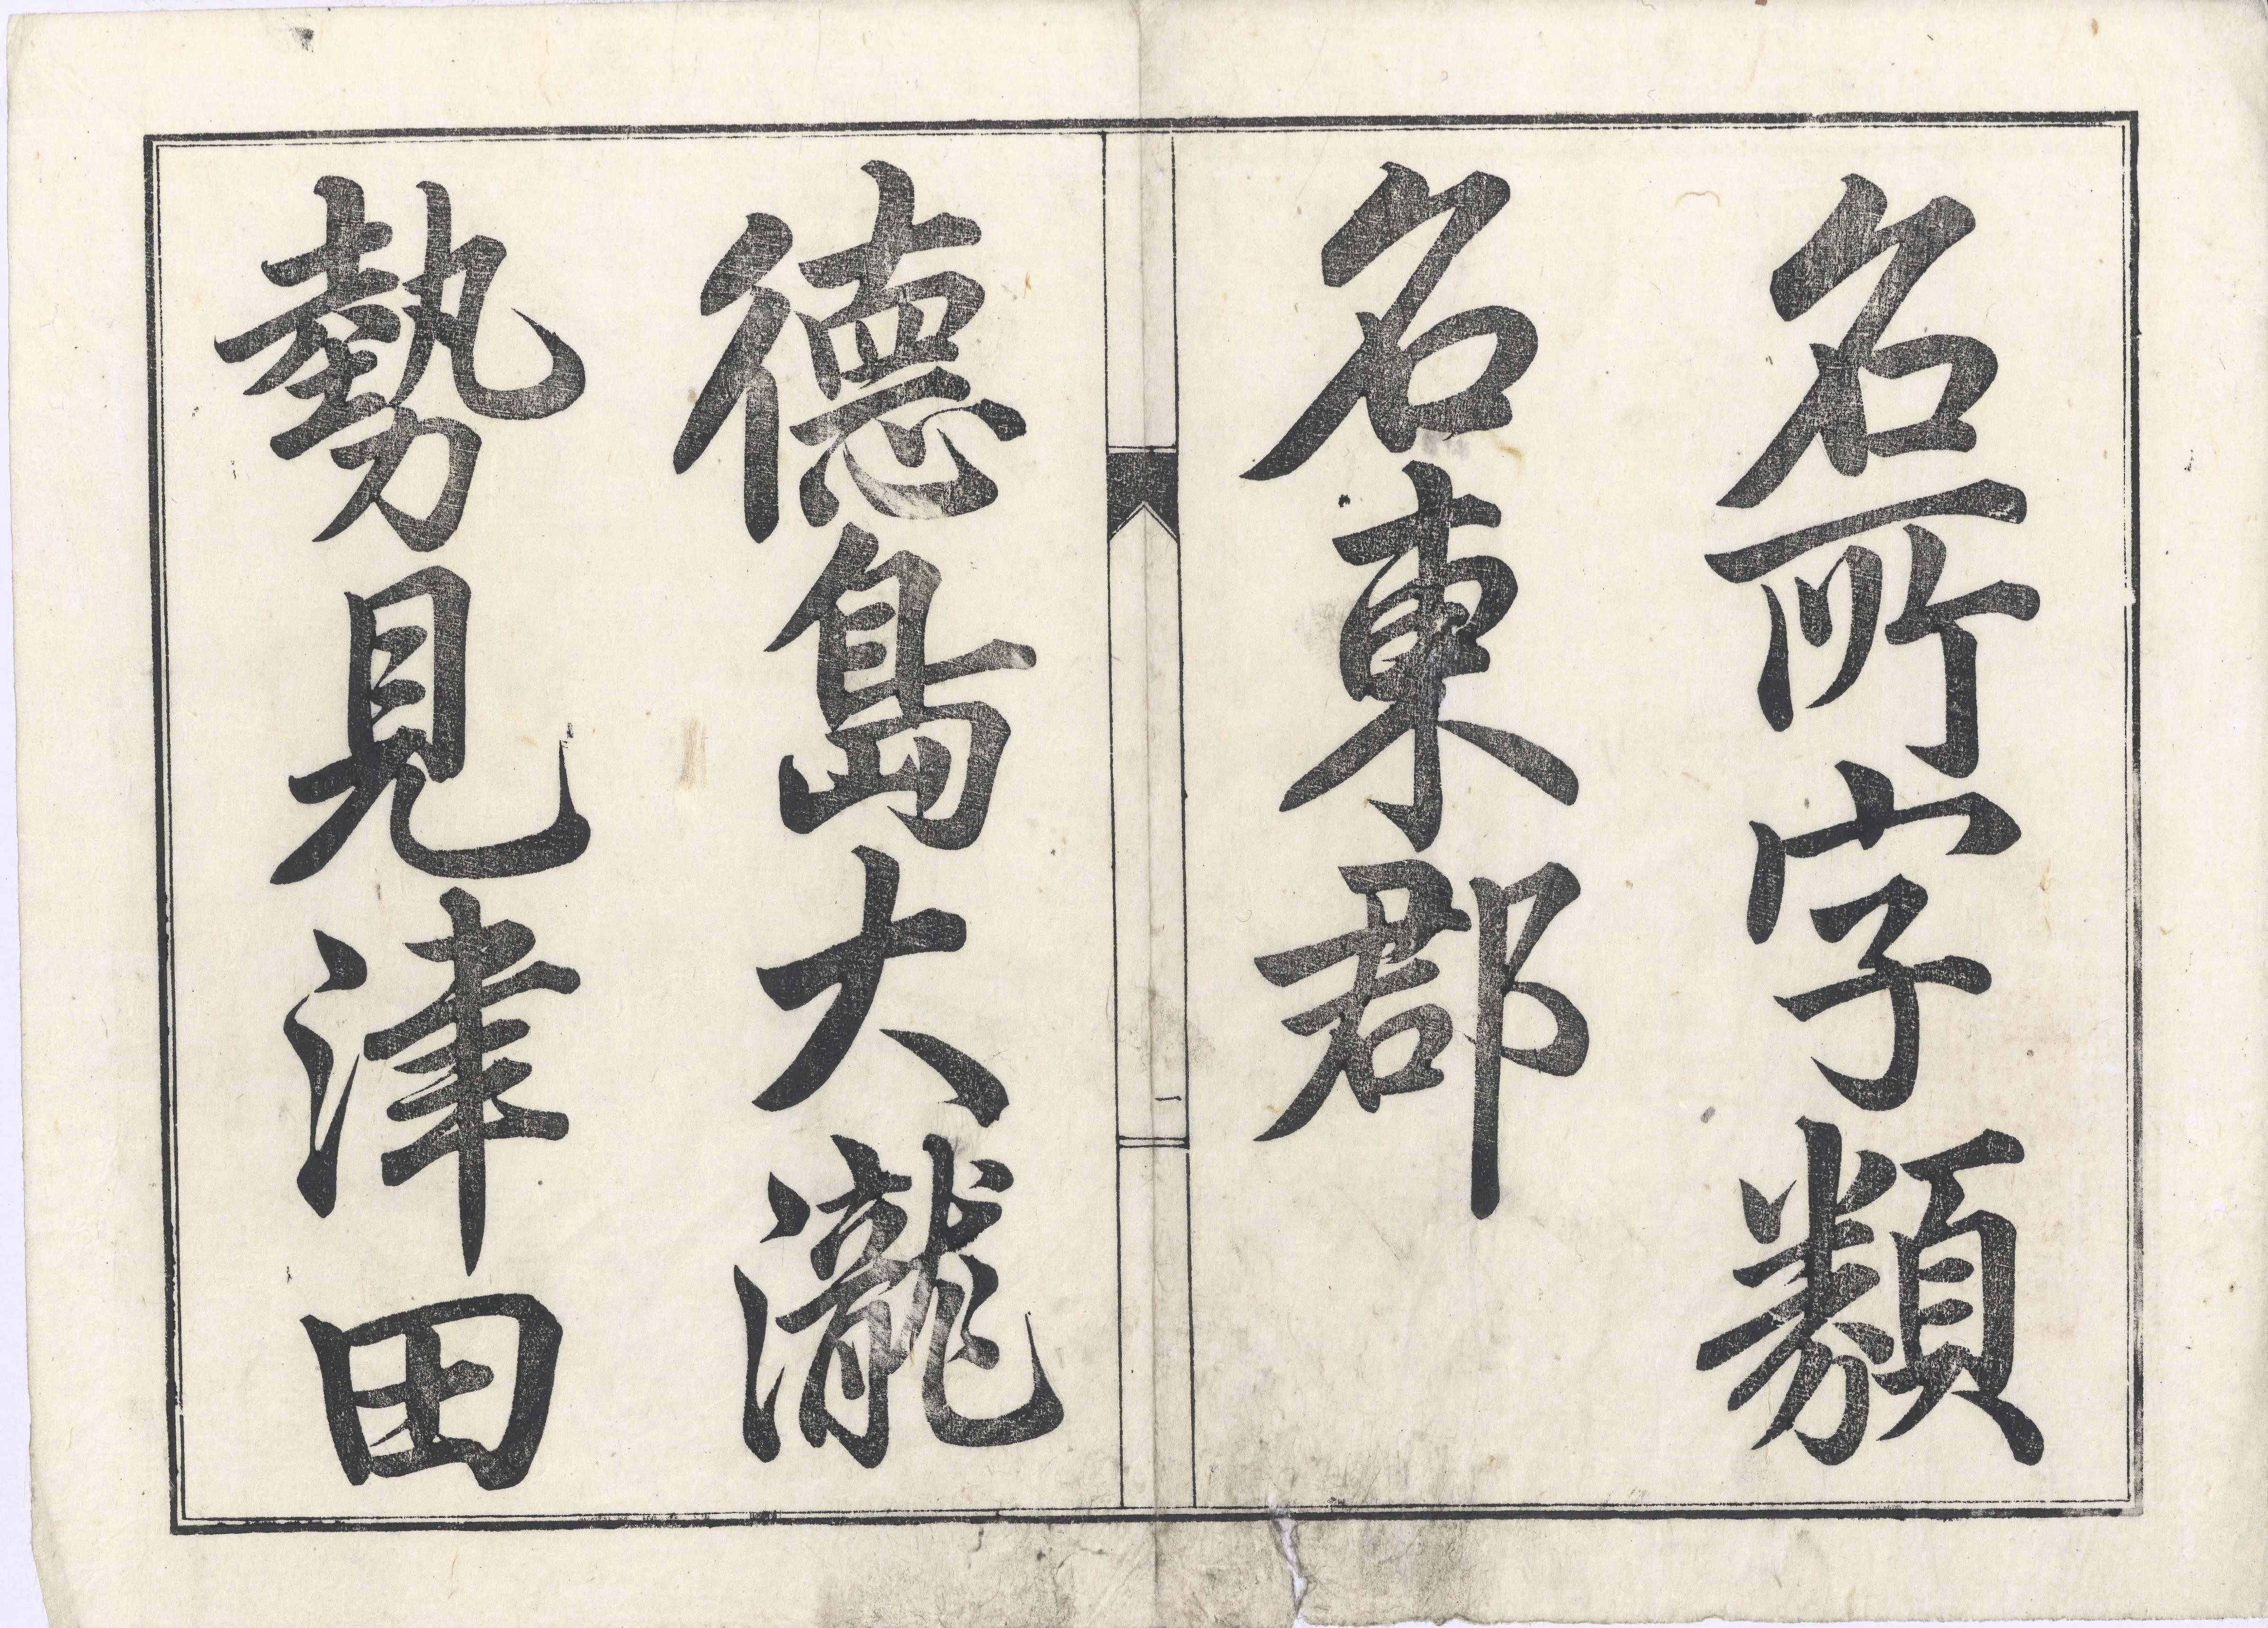 名所字類
名東郡
一
徳島大瀧
勢見津田